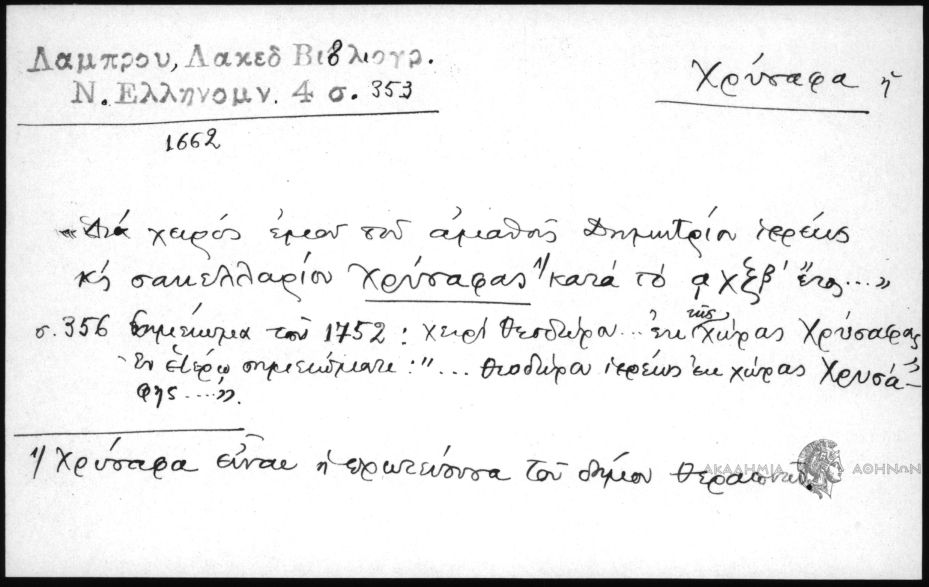 Λαμπρου, Λακεδ Βιβλιογρ.
Ν. Ελληνομν. 4 σ. 353
Χρύσαφα ἡ
1662
«Διά χειρός ἐμοῦ τοῦ ἀμαθοῦς Δημητρίου ἱερέως
κ̀ σακελλαρίου Χρύσαφας 1/ κατά τό ͵αχξβ' ἔτος...»
σ. 356 σημείωμα τοῦ 1752: χειρί Θεοδώρου... ἐκ τῆς χώρας Χρύσαφας
Ἐν ἑτέρῳ σημειώματι: "... Θεοδώρου ἱερέως ἐκ χώρας Χρυσά-
φης ....».
1/ Χρύσαφα εἶναι ἡ πρωτεύουσα τοῦ δήμου Θεραπνῶν.
ΑΚΑΔΗΜΙΑ ΑΘΗΝΩΝ